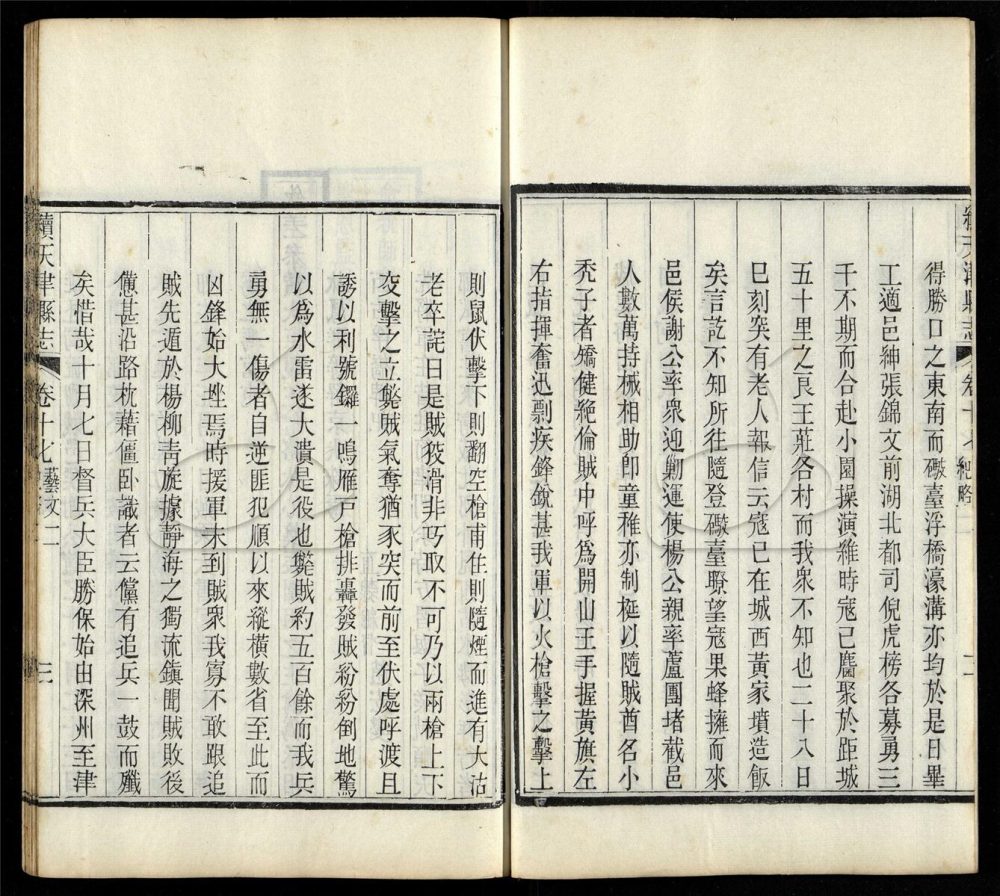 續天津縣志 卷十七
得勝口之東南而礮臺浮橋濠溝亦均於是日畢
工適邑紳張錦文前湖北都司倪虎榜各募勇三
千不期而合赴小園操演維時寇已麕聚於距城
五十里之良王莊各村而我衆不知也二十八日
巳刻突有老人報信云寇已在城西黃家墳造飯
矣言訖不知所往隨登礮臺瞭望寇果蜂擁而來
邑侯謝公率衆迎勦運使楊公親率蘆團堵截邑
人數萬持械相助卽童稚亦制梃以隨賊酋名小
禿子者矯健絕倫賊中呼爲開山王手握黃旗左
右指揮奮迅剽疾鋒銳甚我軍以火槍擊之擊上
則鼠伏擊下則翻空槍甫住則隨煙而進有大沽
老卒詫曰是賊狡滑非巧取不可乃以兩槍上下
交擊之立斃賊氣奪猶豕突而前至伏處呼渡且
誘以利號鑼一鳴雁戸槍排轟發賊紛紛倒地驚
以爲水雷遂大潰是役也斃賊約五百餘而我兵
勇無一傷者自逆匪犯順以來縱橫數省至此而
凶鋒始大挫焉時援軍未到賊衆我寡不敢跟追
賊先遁於楊柳靑旋據靜海之獨流鎭聞賊敗後
憊甚沿路枕藉僵卧識者云儻有追兵一鼓而殲
矣惜哉十月七日督兵大臣勝保始由深州至津
續天津縣志 卷十七 藝文二 三